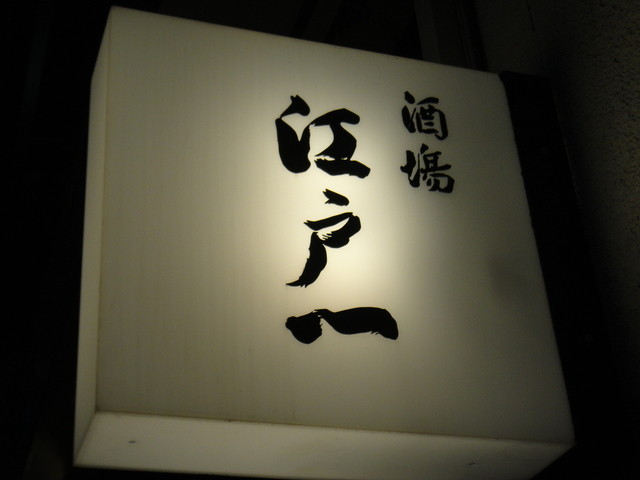 酒場
江戸一